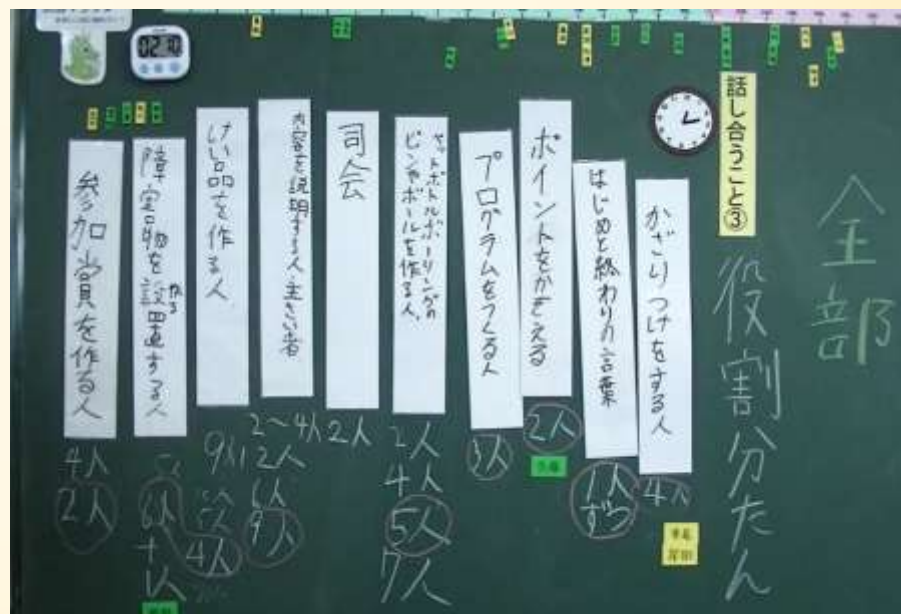 全部
話し合うこと③
役割分たん
かざりつけをする人
4人
はじめと終わりの言葉
1人
ずつ
ポイントをかぞえる
2人
プログラムをつくる人
3人
ペットボトルボーリングの
ピンやボールを作る人
2人
4人
5人
7人
司会
2人
内容を説明する人
2〜4人
2人
6人
9人
けい品を作る人
9人
4人
障害物を設置する人
作る
6人
参加賞を作る人
4人
2人
02 10